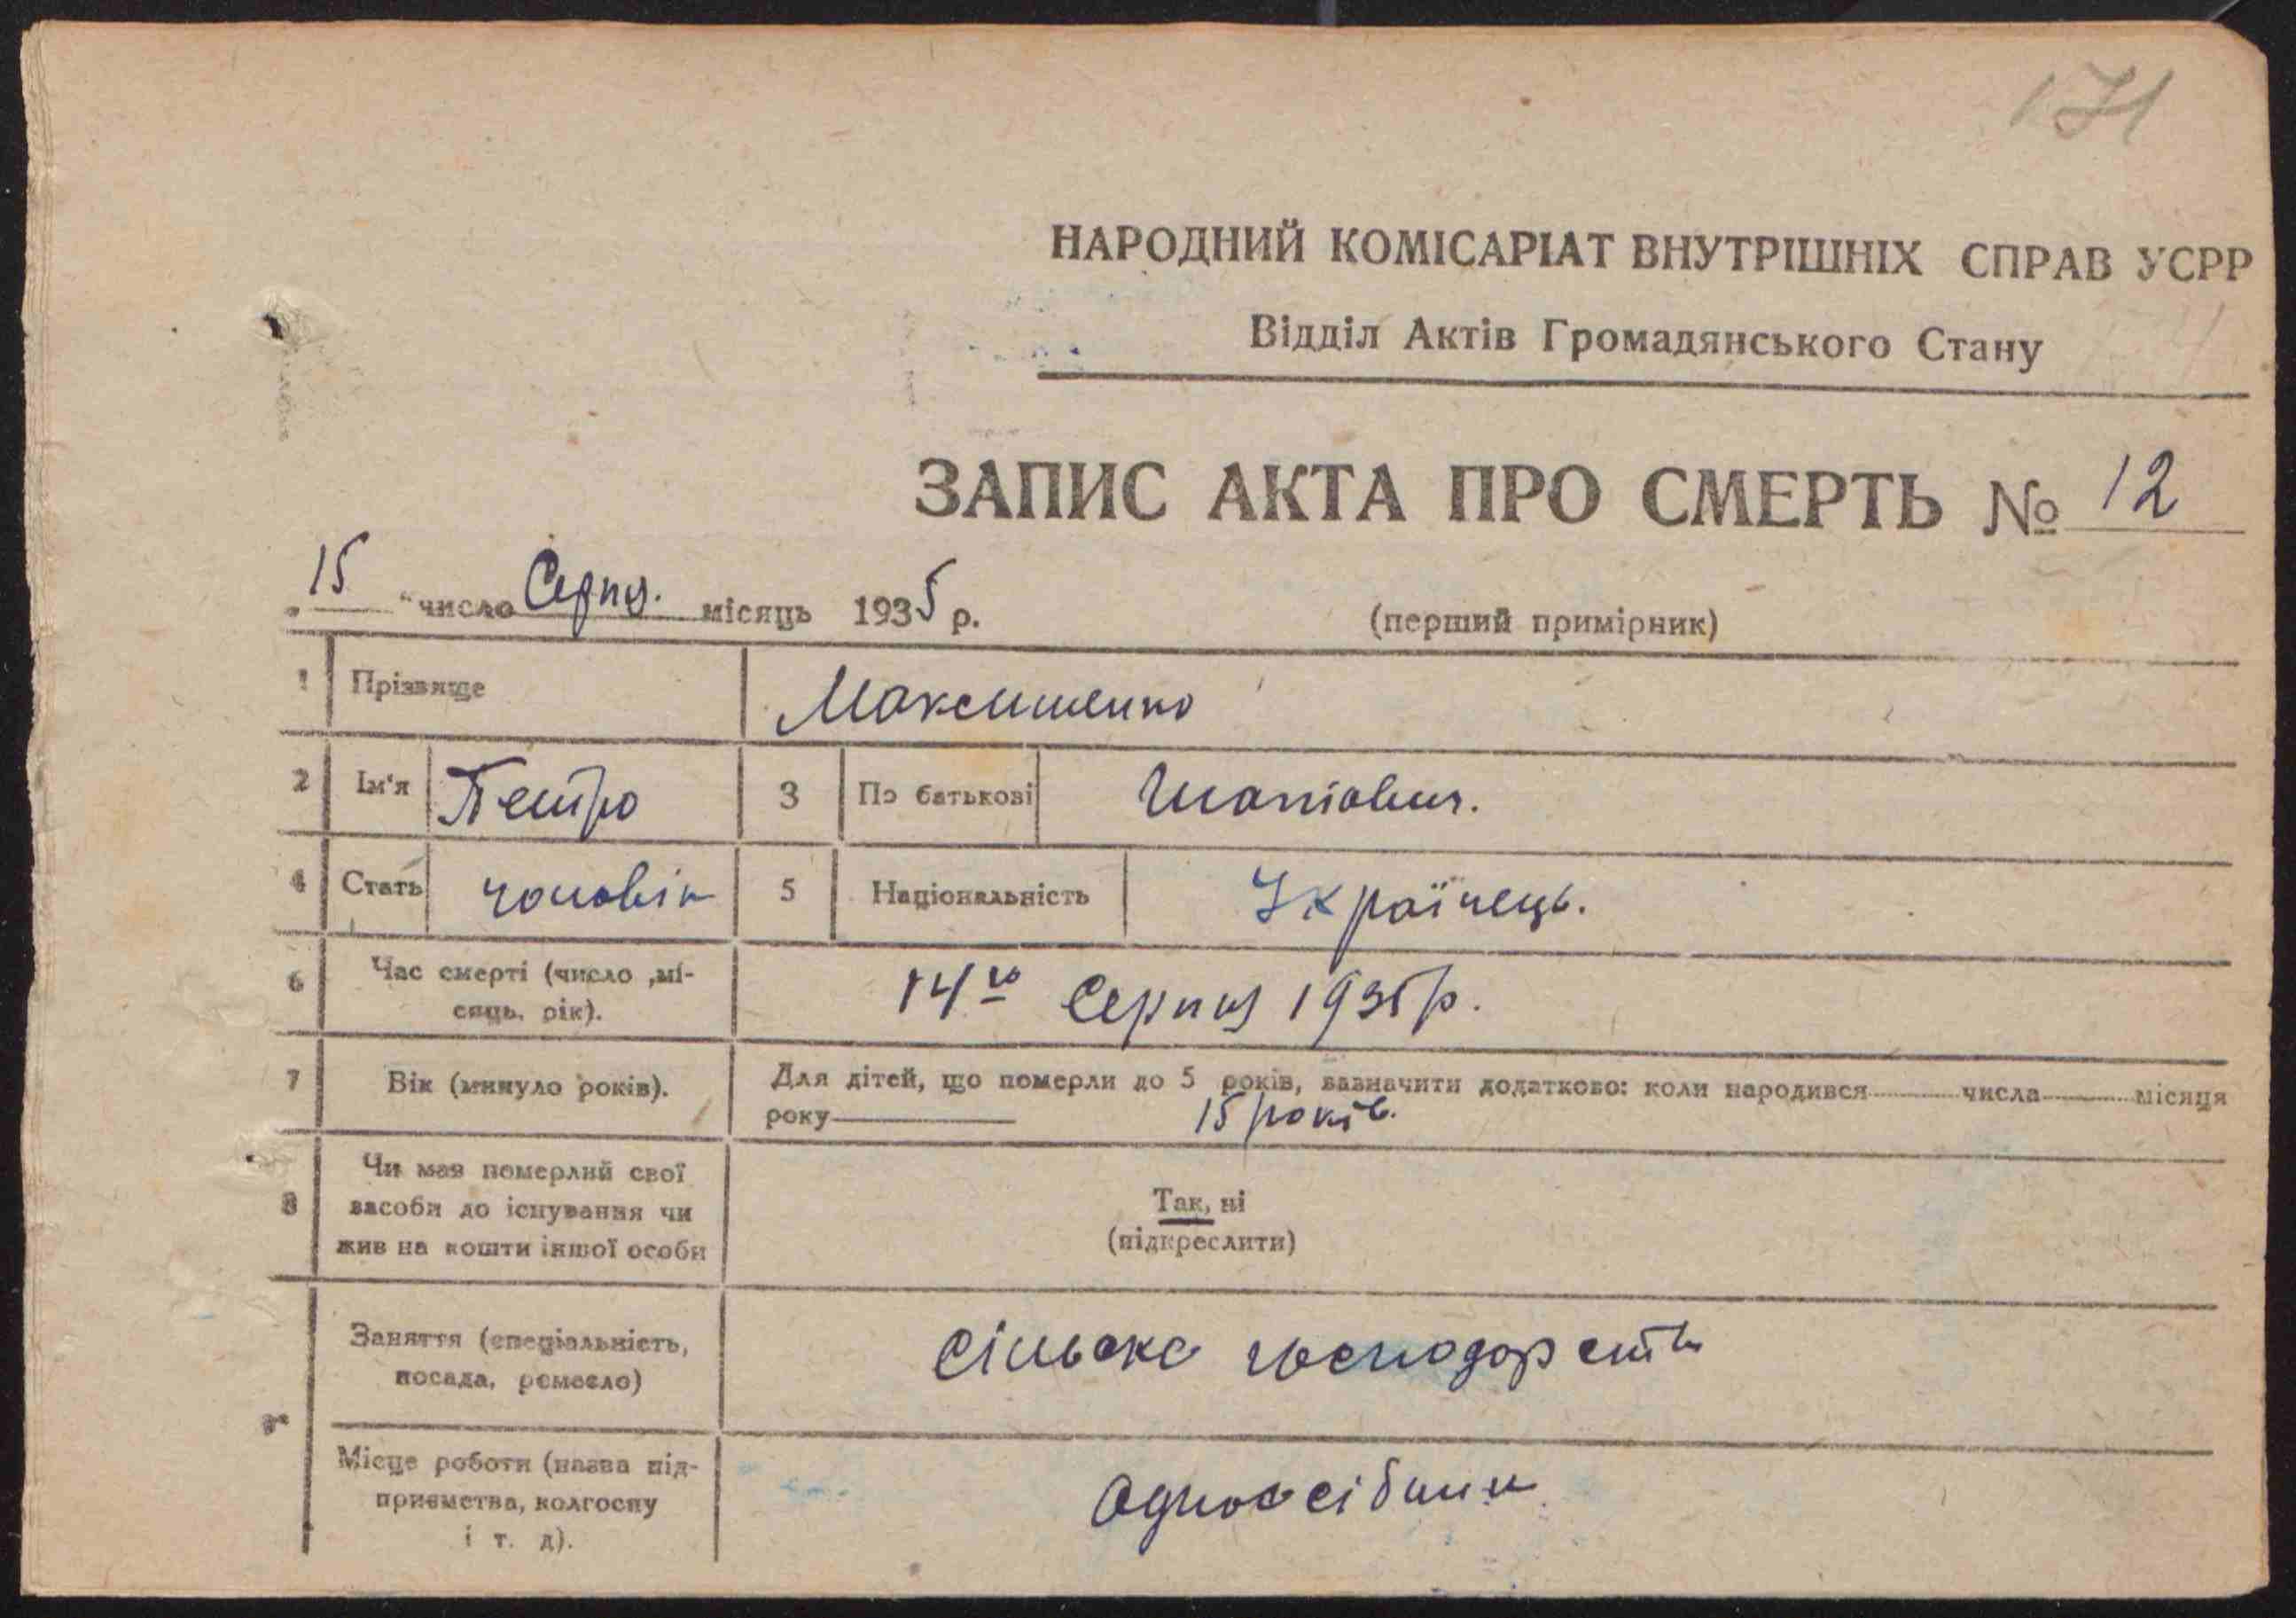 171
НАРОДНИЙ КОМІСАРІАТ ВНУТРІШНІХ СПРАВ УСРР
Відділ Актів Громадянського Стану
ЗАПИС АКТА ПРО СМЕРТЬ № 12
„15“ число Серпня. місяць 1935 р. (перший примірник)
1 Прізвище Максименко
2 Ім'я Петро 3 По батькові
4 Стать чоловік 5 Національність Українець.
6 Час смерті (число ,мі-
сяць, рік). 14го Серпня 1935 р.
7 Вік (минуло років). Для дітей, що померли до 5 років, зазначити додатково: коли народився числа місяця
року 15 років.
8 Чи мав померлий свої
засоби до існування чи
жив на кошти іншої особи
Так, ні
(підкреслити)
Заняття (спеціальність,
посада, ремесло)
сільське господарств
9
Місце роботи (назва під-
приємства, колгоспу
і т. д).
Одноосібник